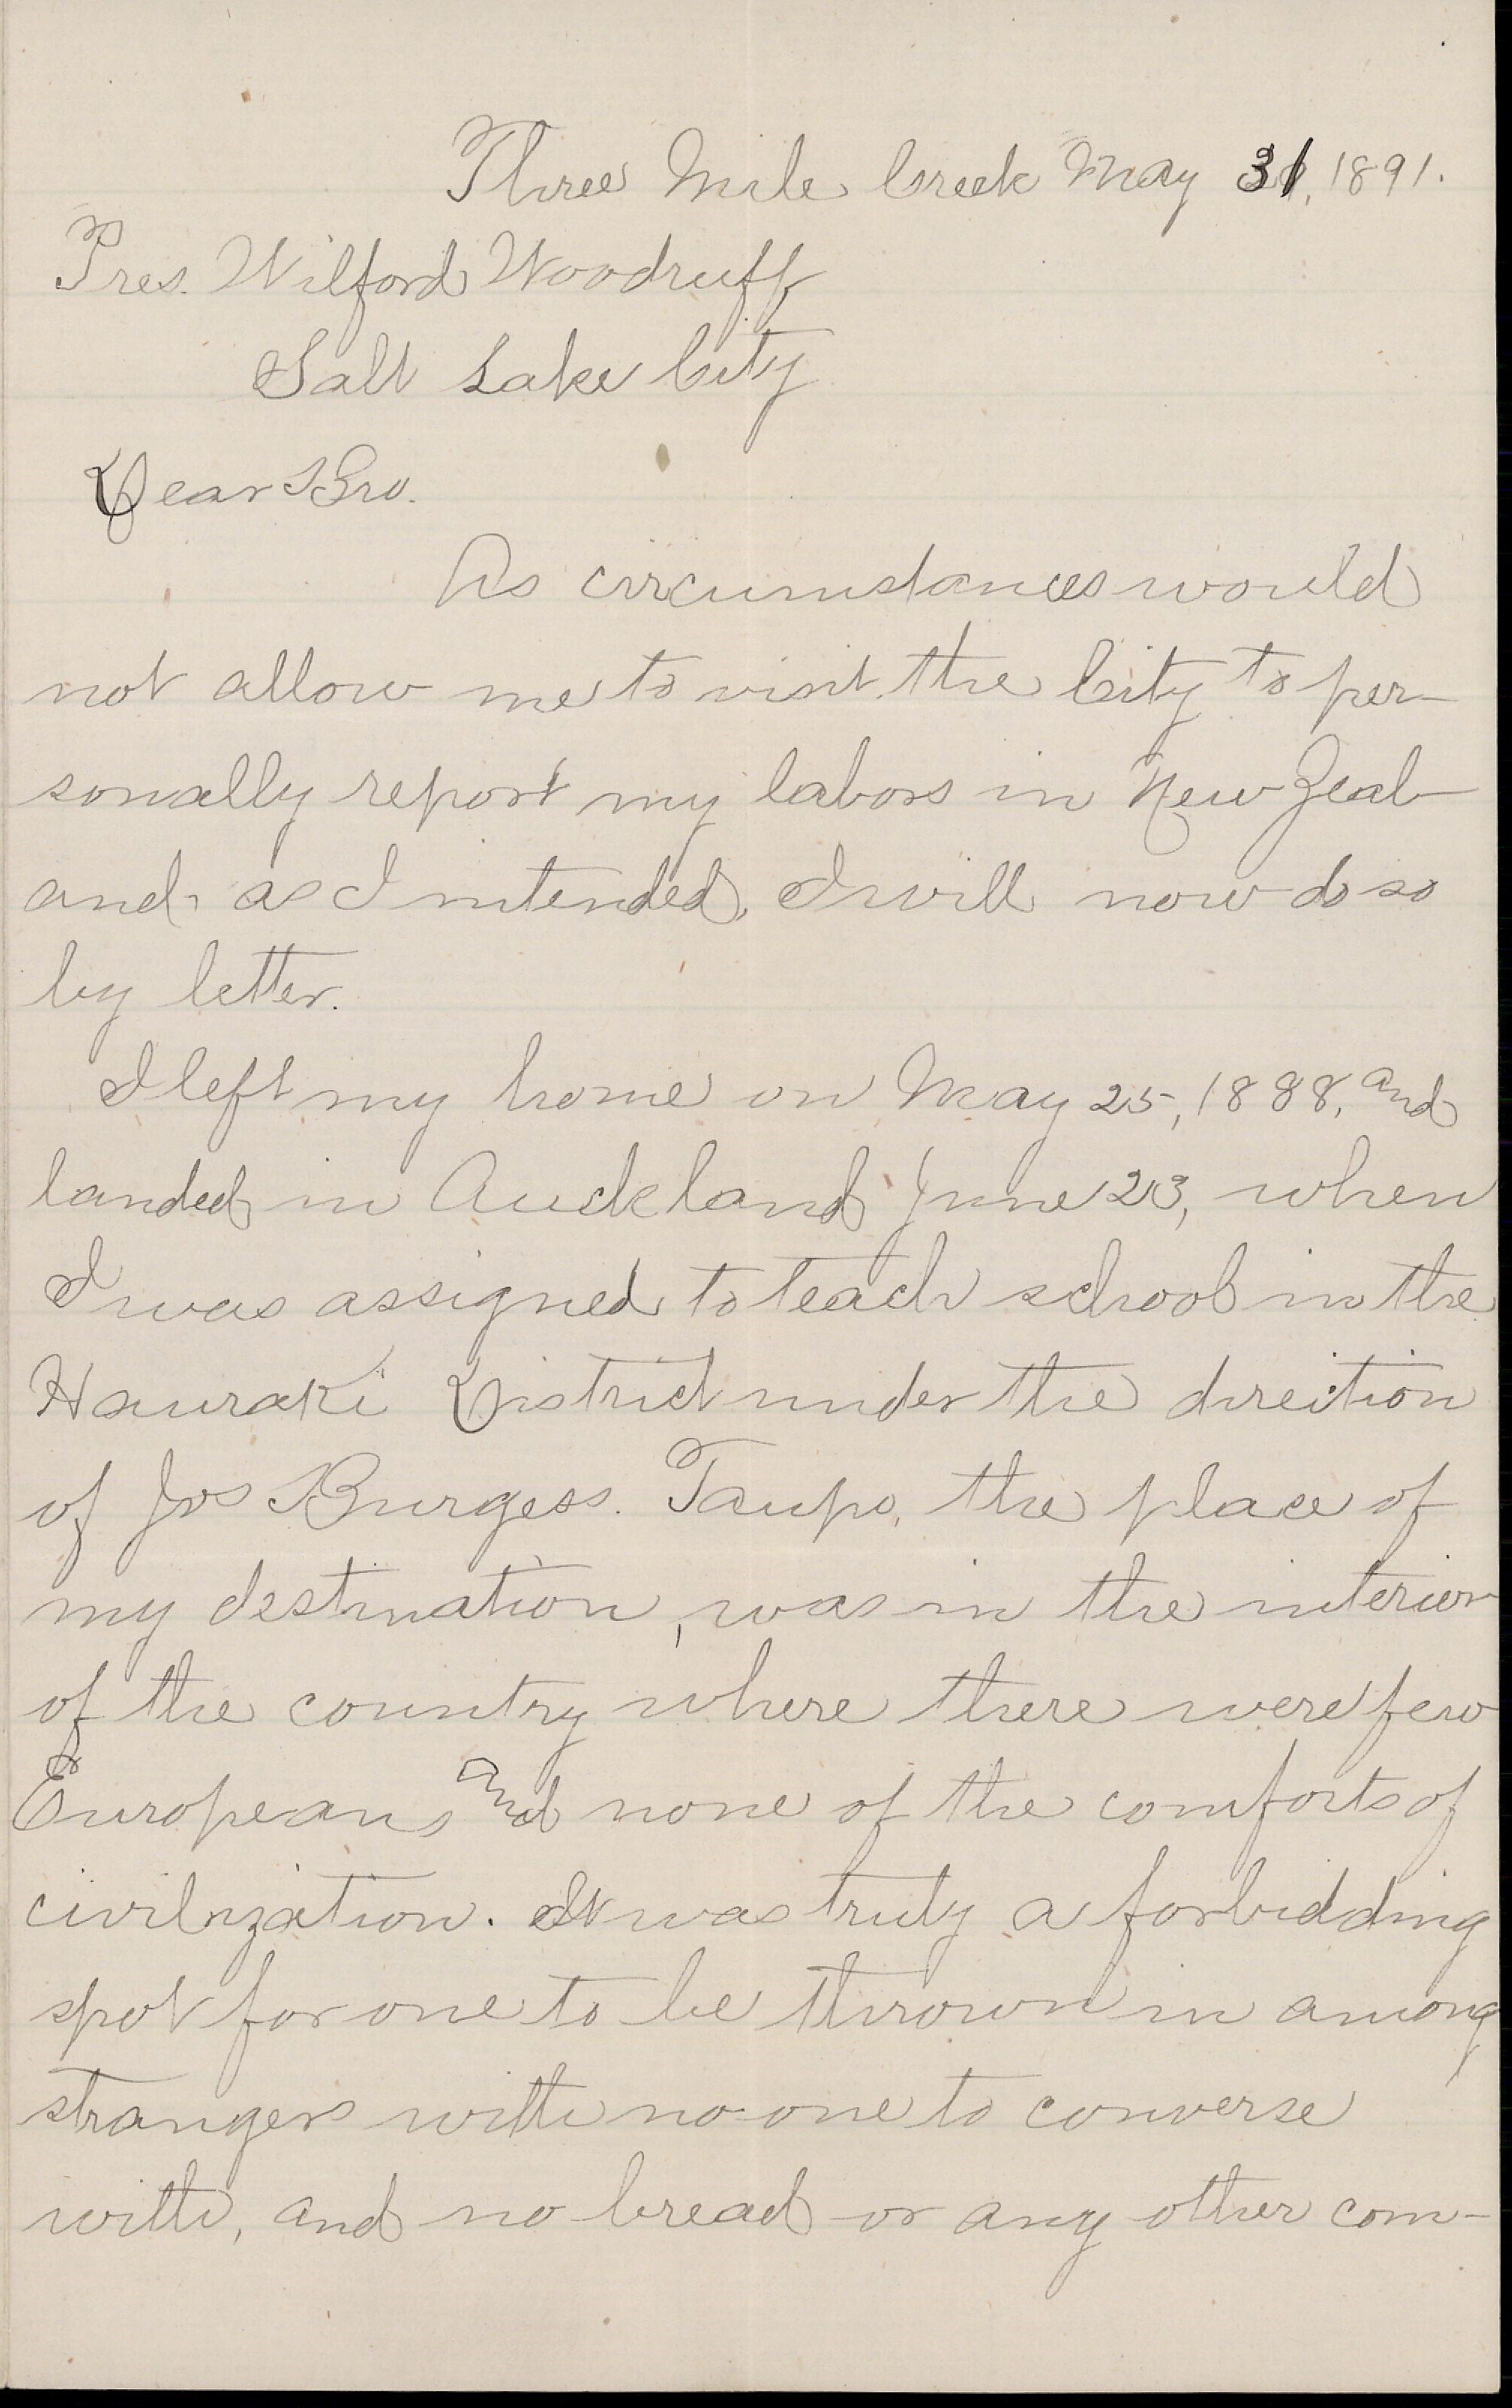 Three Mile Creek May 31, 1891.
Pres. Wilford Woodruff
Salt Lake City
Dear Bro.
As circumstances would
not allow me to visit the City to per-
sonally report my labors in New Zeal-
and as I intended, I will now do so
by letter.
I left my home on May 25, 1888, and
landed in Auckland June 23, when
I was assigned to teach school in the
Hauraki District under the direction
of Jos Burgess. Taupo, the place of
my destination, was in the interior
of the country where there were few
Europeans and none of the comforts of
civilization. It was truly a forbidding
spot for one to be thrown in among
strangers with no one to converse
with, and no bread or any other com-